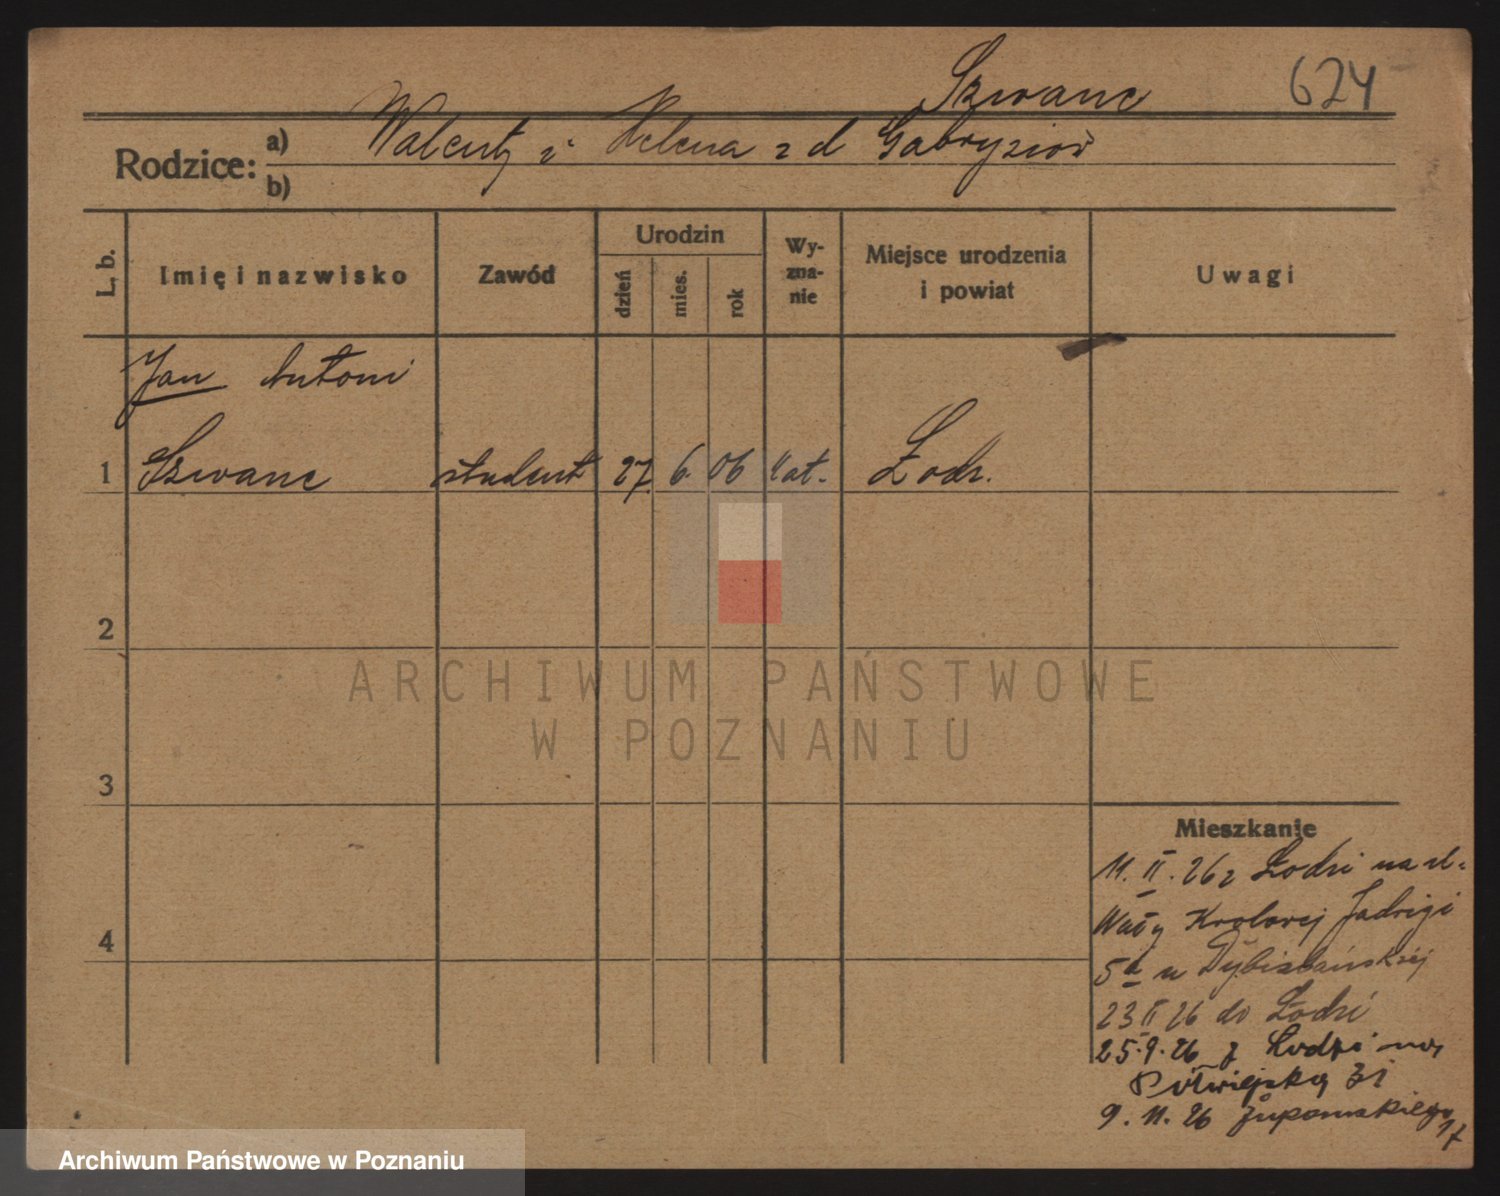 Szwanc 624
Rodzice: a) Walenty i Helena z d Gabrysiów
b)
L. b. Imię i nazwisko Zawód Urodzin dzień mies. rok Wyznanie Miejsce urodzenia i powiat Uwagi
Jan Antoni
1 Szwanc student 27 6. 06 kat. Łódź.
2
3
4
Mieszkanie
11. II. 26 z Łodzi na ul.
Wały Królowej Jadwigi
5a u
23 II 26 do Łodzi
25.9.26 z Łodzi na
Półwiejską 31
9. 11. 26 Żupańskiego 17
ARCHIWUM PAŃSTWOWE
W POZNANIU
Archiwum Państwowe w Poznaniu